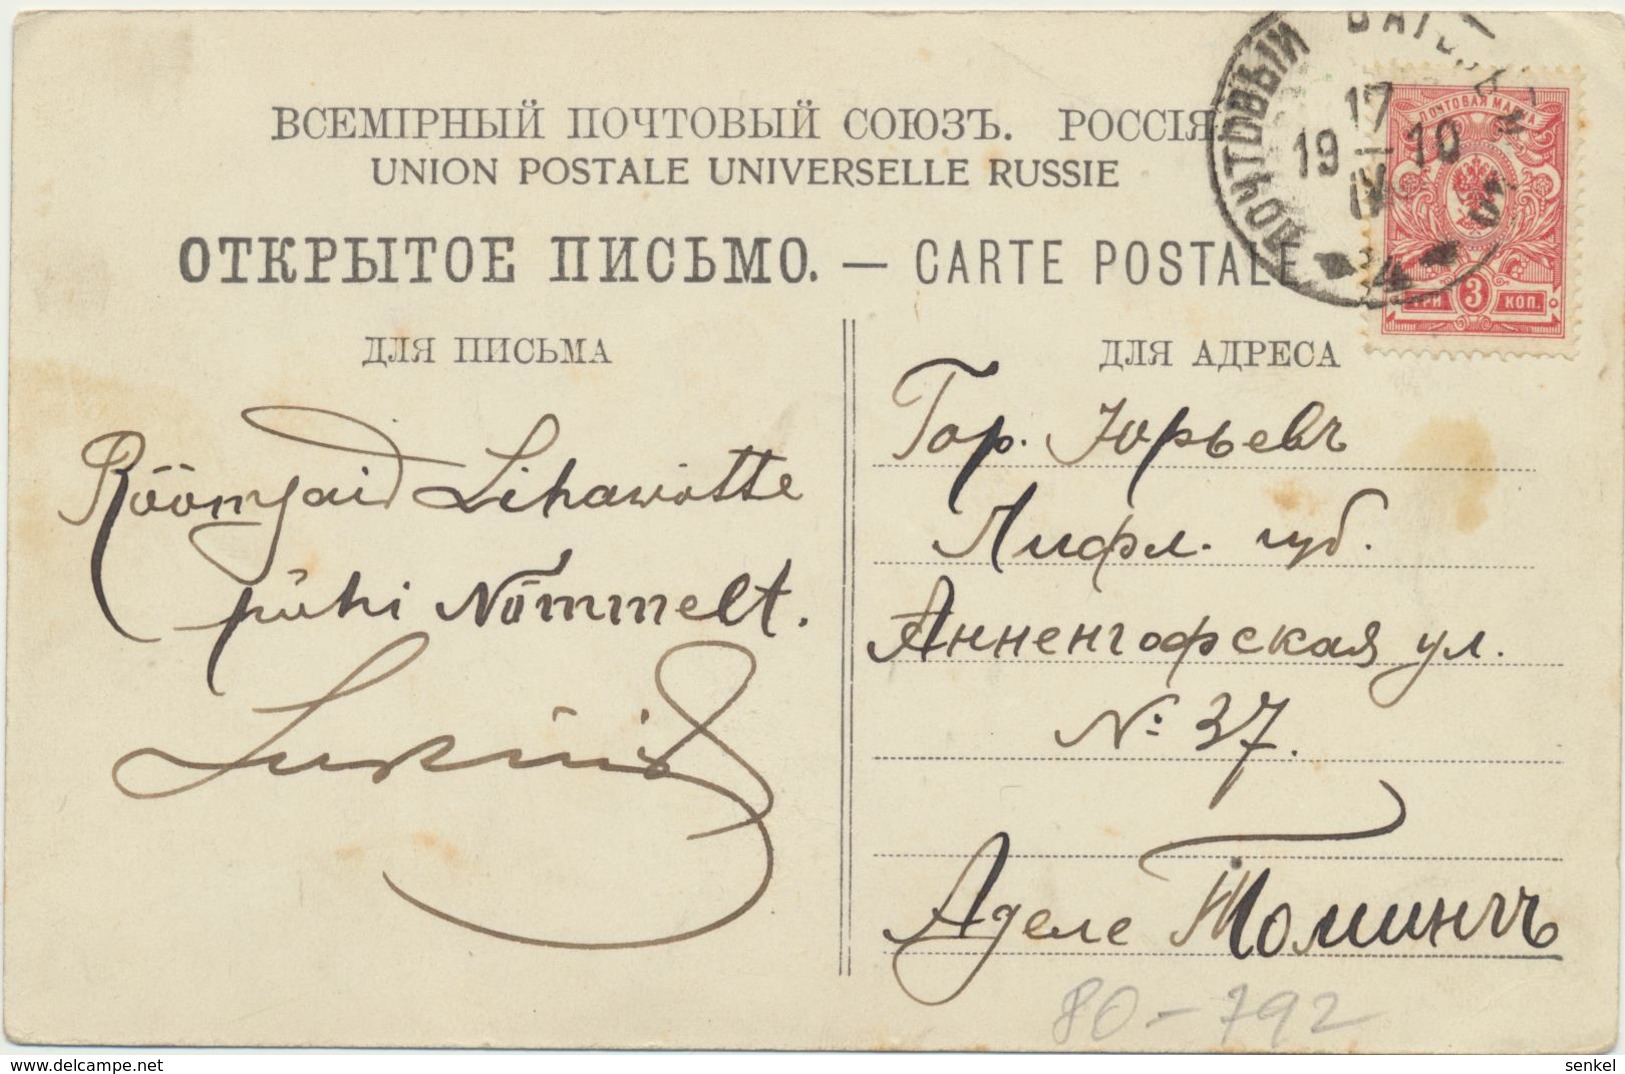 ВСЕМІРНЫЙ ПОЧТОВЫЙ СОЮЗЪ. РОССІЯ
UNION POSTALE UNIVERSELLE RUSSIE
ОТКРЫТОЕ ПИСЬМО. — CARTE POSTALE
ПОЧТОВЫЙ ВАГОНЪ
17
19 IV 10
4
ПОЧТОВАЯ МАРКА
ТРИ 3 КОП.
ДЛЯ ПИСЬМА
Rõõmsaid Lihawõtte
pühi Nõmmelt.
ДЛЯ АДРЕСА
Гор. Юрьевъ
Лифл. губ.
Анненгофская ул.
№: 37.
Аделе Томингъ
80-792
delcampe.net
senkel